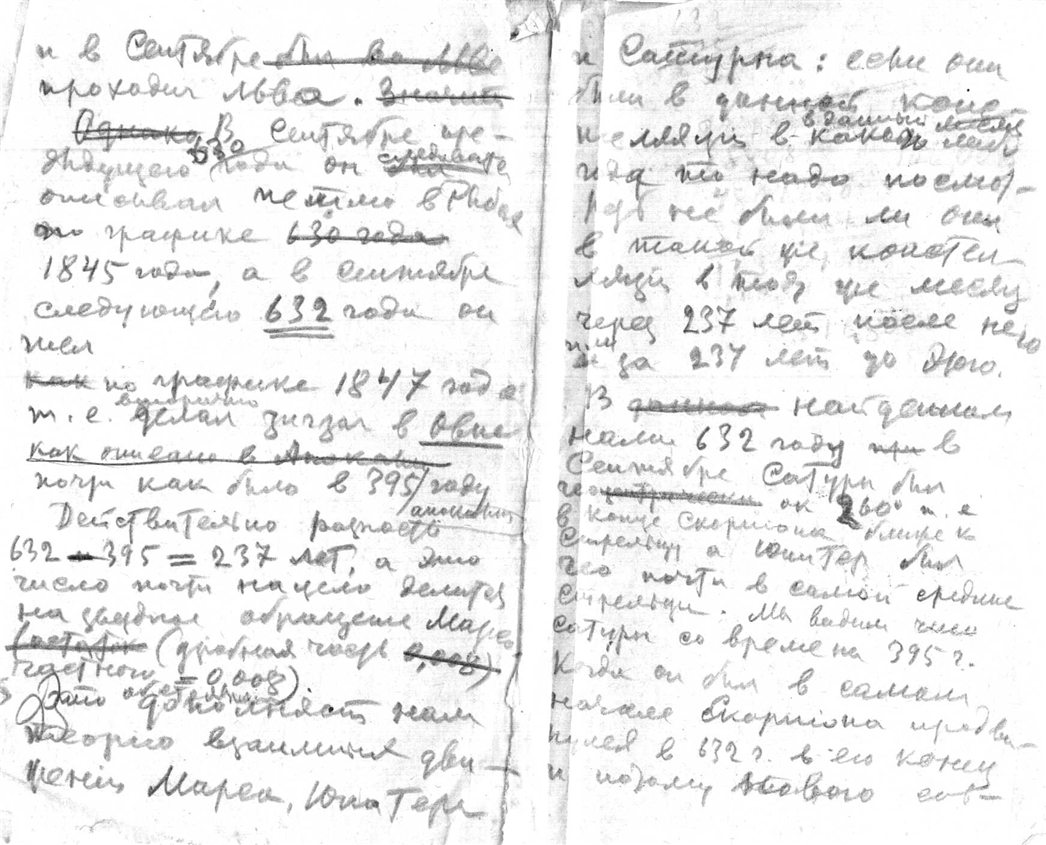 и в Сентябре был во Льве
проходил Льва. Значит
Однако В Сентябре пре-
дыдущего 630 года он
описывал петлю в Рыбах
по графике 630 года
1845 года, а в сентябре
следующего 632 года он
шел
как по графике 1847 года
т. е. делал зигзаг в Овне
как описано в Апокали
почти как было в 395 году
Действительно разность
632 - 395 = 237 лет, а это
число почти нацело делится
на звездное обращение Марса
(остаток (дробная часть 0,008)
частного = 0,008)
Это дополняет нам
теорию взаимных дви-
жений Марса, Юпитера
и Сатурна: если они
были в данной конс-
телляции в какой либо
в данный месяц
года то надо посмот-
реть не были ли они
в такой же констел-
ляции в тот же месяц
через 237 лет после него
или за 237 лет до этого.
В данном найденном
нами 632 году при в
Сентябре Сатурн был
геоцентрически ок 260° т. е
в конце Скорпиона ближе к
Стрельцу а Юпитер был
гео почти в самой средине
Стрельца. Мы видим что
Сатурн со времени 395 г.
когда он был в самом
начале Скорпиона продви-
нулся в 632 г. в его конец
и потому нового сов-